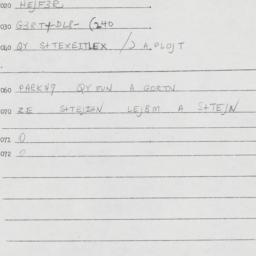 020 HEJF3R
030 G3RT4DLB- (240
040 QY S+TEXEITLEX /) A PLOJT
060 PARKH9 QY FUN A GORTN
070 ZE S+TEJZEN LEJBM A S+TEJN
071 0
072 0